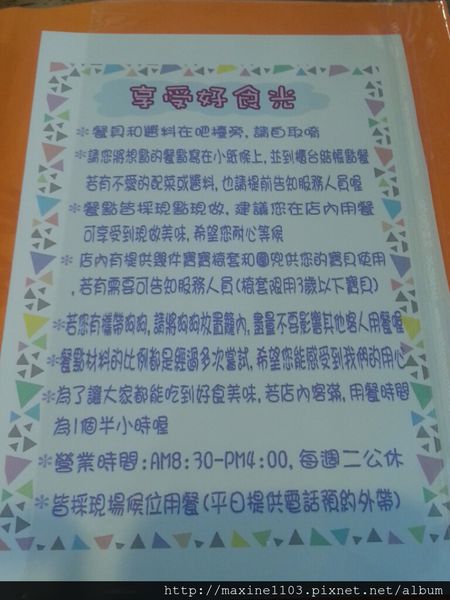 享受好食光
*餐具和醬料在吧檯旁,請自取唷
*請您將想點的餐點寫在小紙條上,並到櫃台結帳點餐
若有不愛的配菜或醬料,也請提前告知服務人員喔
*餐點皆採現點現做,建議您在店內用餐
可享受到現做美味,希望您耐心等候
*店內有提供幾件寶寶椅套和圍兜供您的寶貝使用
,若有需要可告知服務人員(椅套限用3歲以下寶貝)
*若您有攜帶狗狗,請將狗狗放置籠內,盡量不要影響其他客人用餐喔
*餐點材料的比例都是經過多次嘗試,希望您能感受到我們的用心
*為了讓大家都能吃到好食美味,若店內客滿,用餐時間
為1個半小時喔
*營業時間:AM8:30-PM4:00,每週二公休
*皆採現場候位用餐(平日提供電話預約外帶)
http://maxine1103.pixnet.net/album